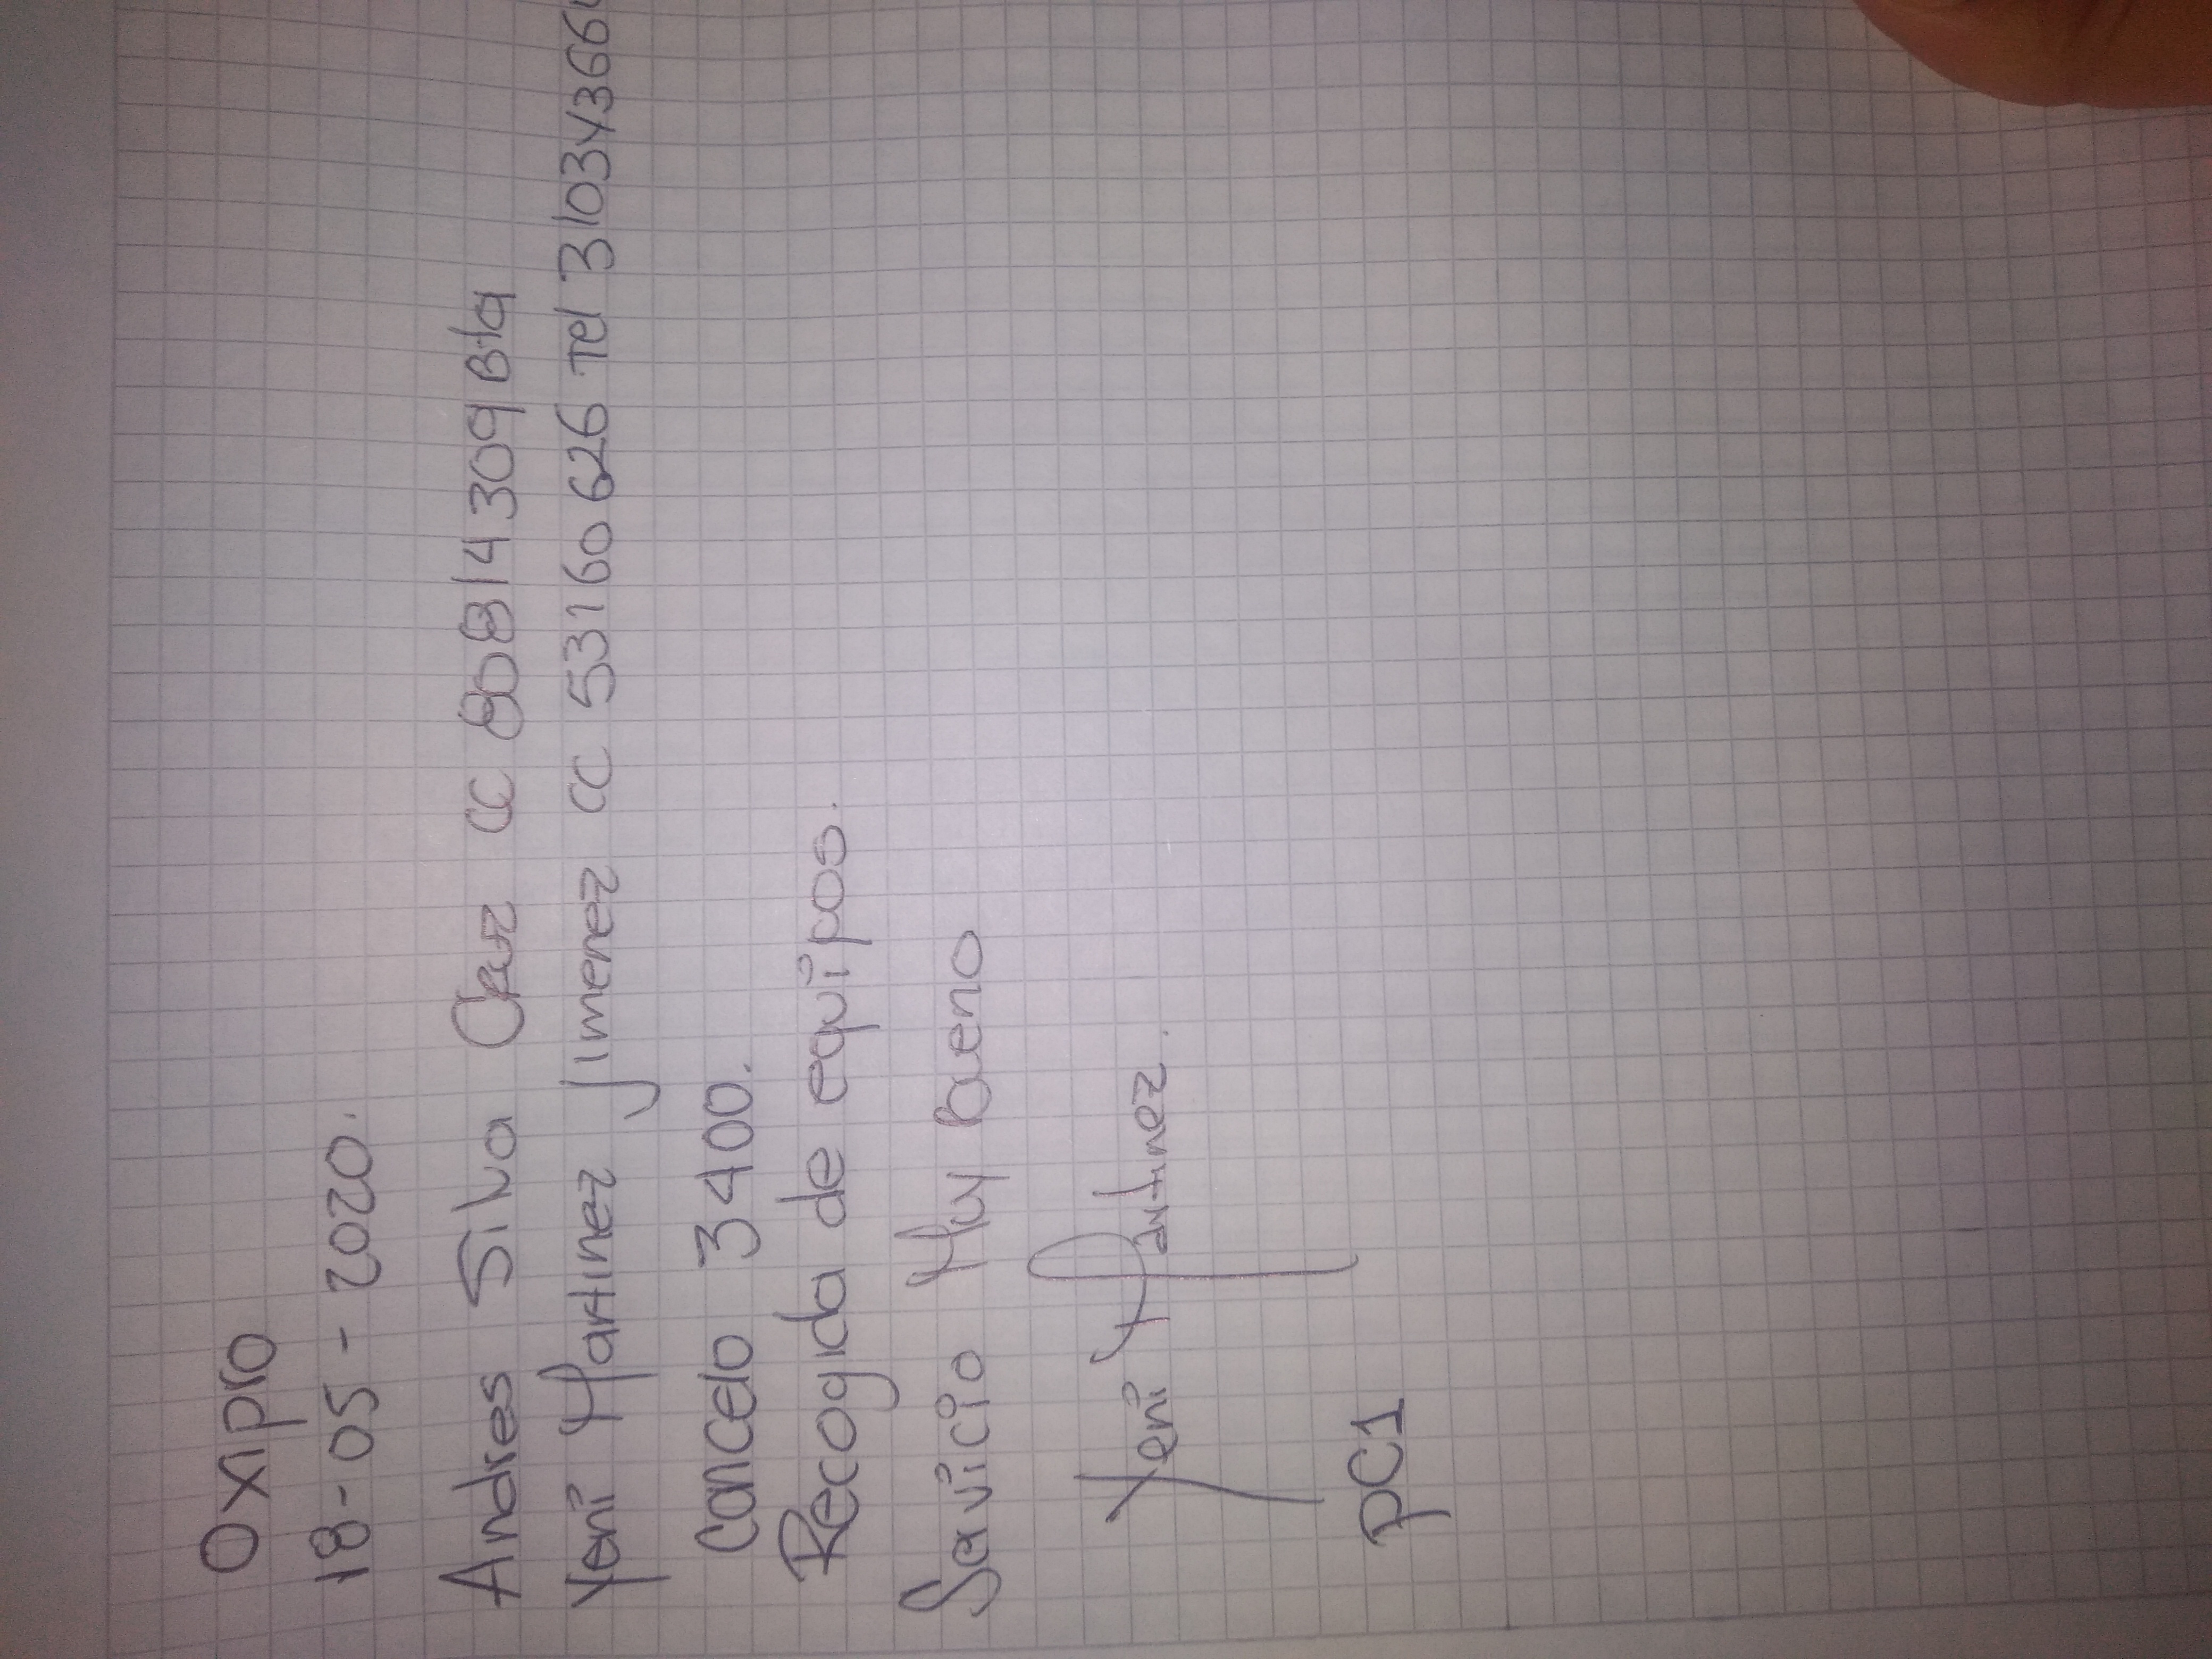 Oxipro
18-05-2020.
Andres Silva cc 80814309 Bta
Yeni Martinez Jimenez cc 53160626 Tel 310343664
Cancelo 3400.
Recogida de equipos.
Servicio Muy Bueno
Yeni Martinez.
PC1